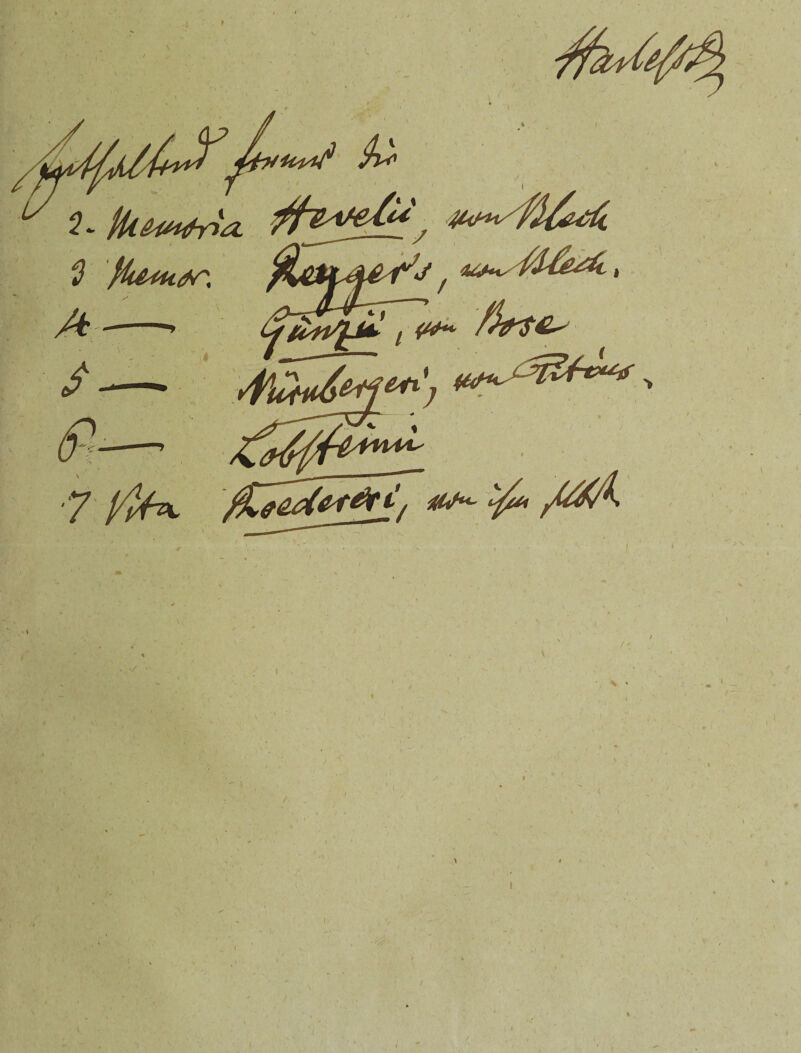 Harleß D
Enthaltend ferner die
2. Memoria Hevelii, von Blech
3 Memor. Reyger's, von Blech.
4 — Günzii, von Bose
5 — Nürnbergeri, von Titius.
6 — Lobsteinii
7 Vita Roedereri, von ihm selbst